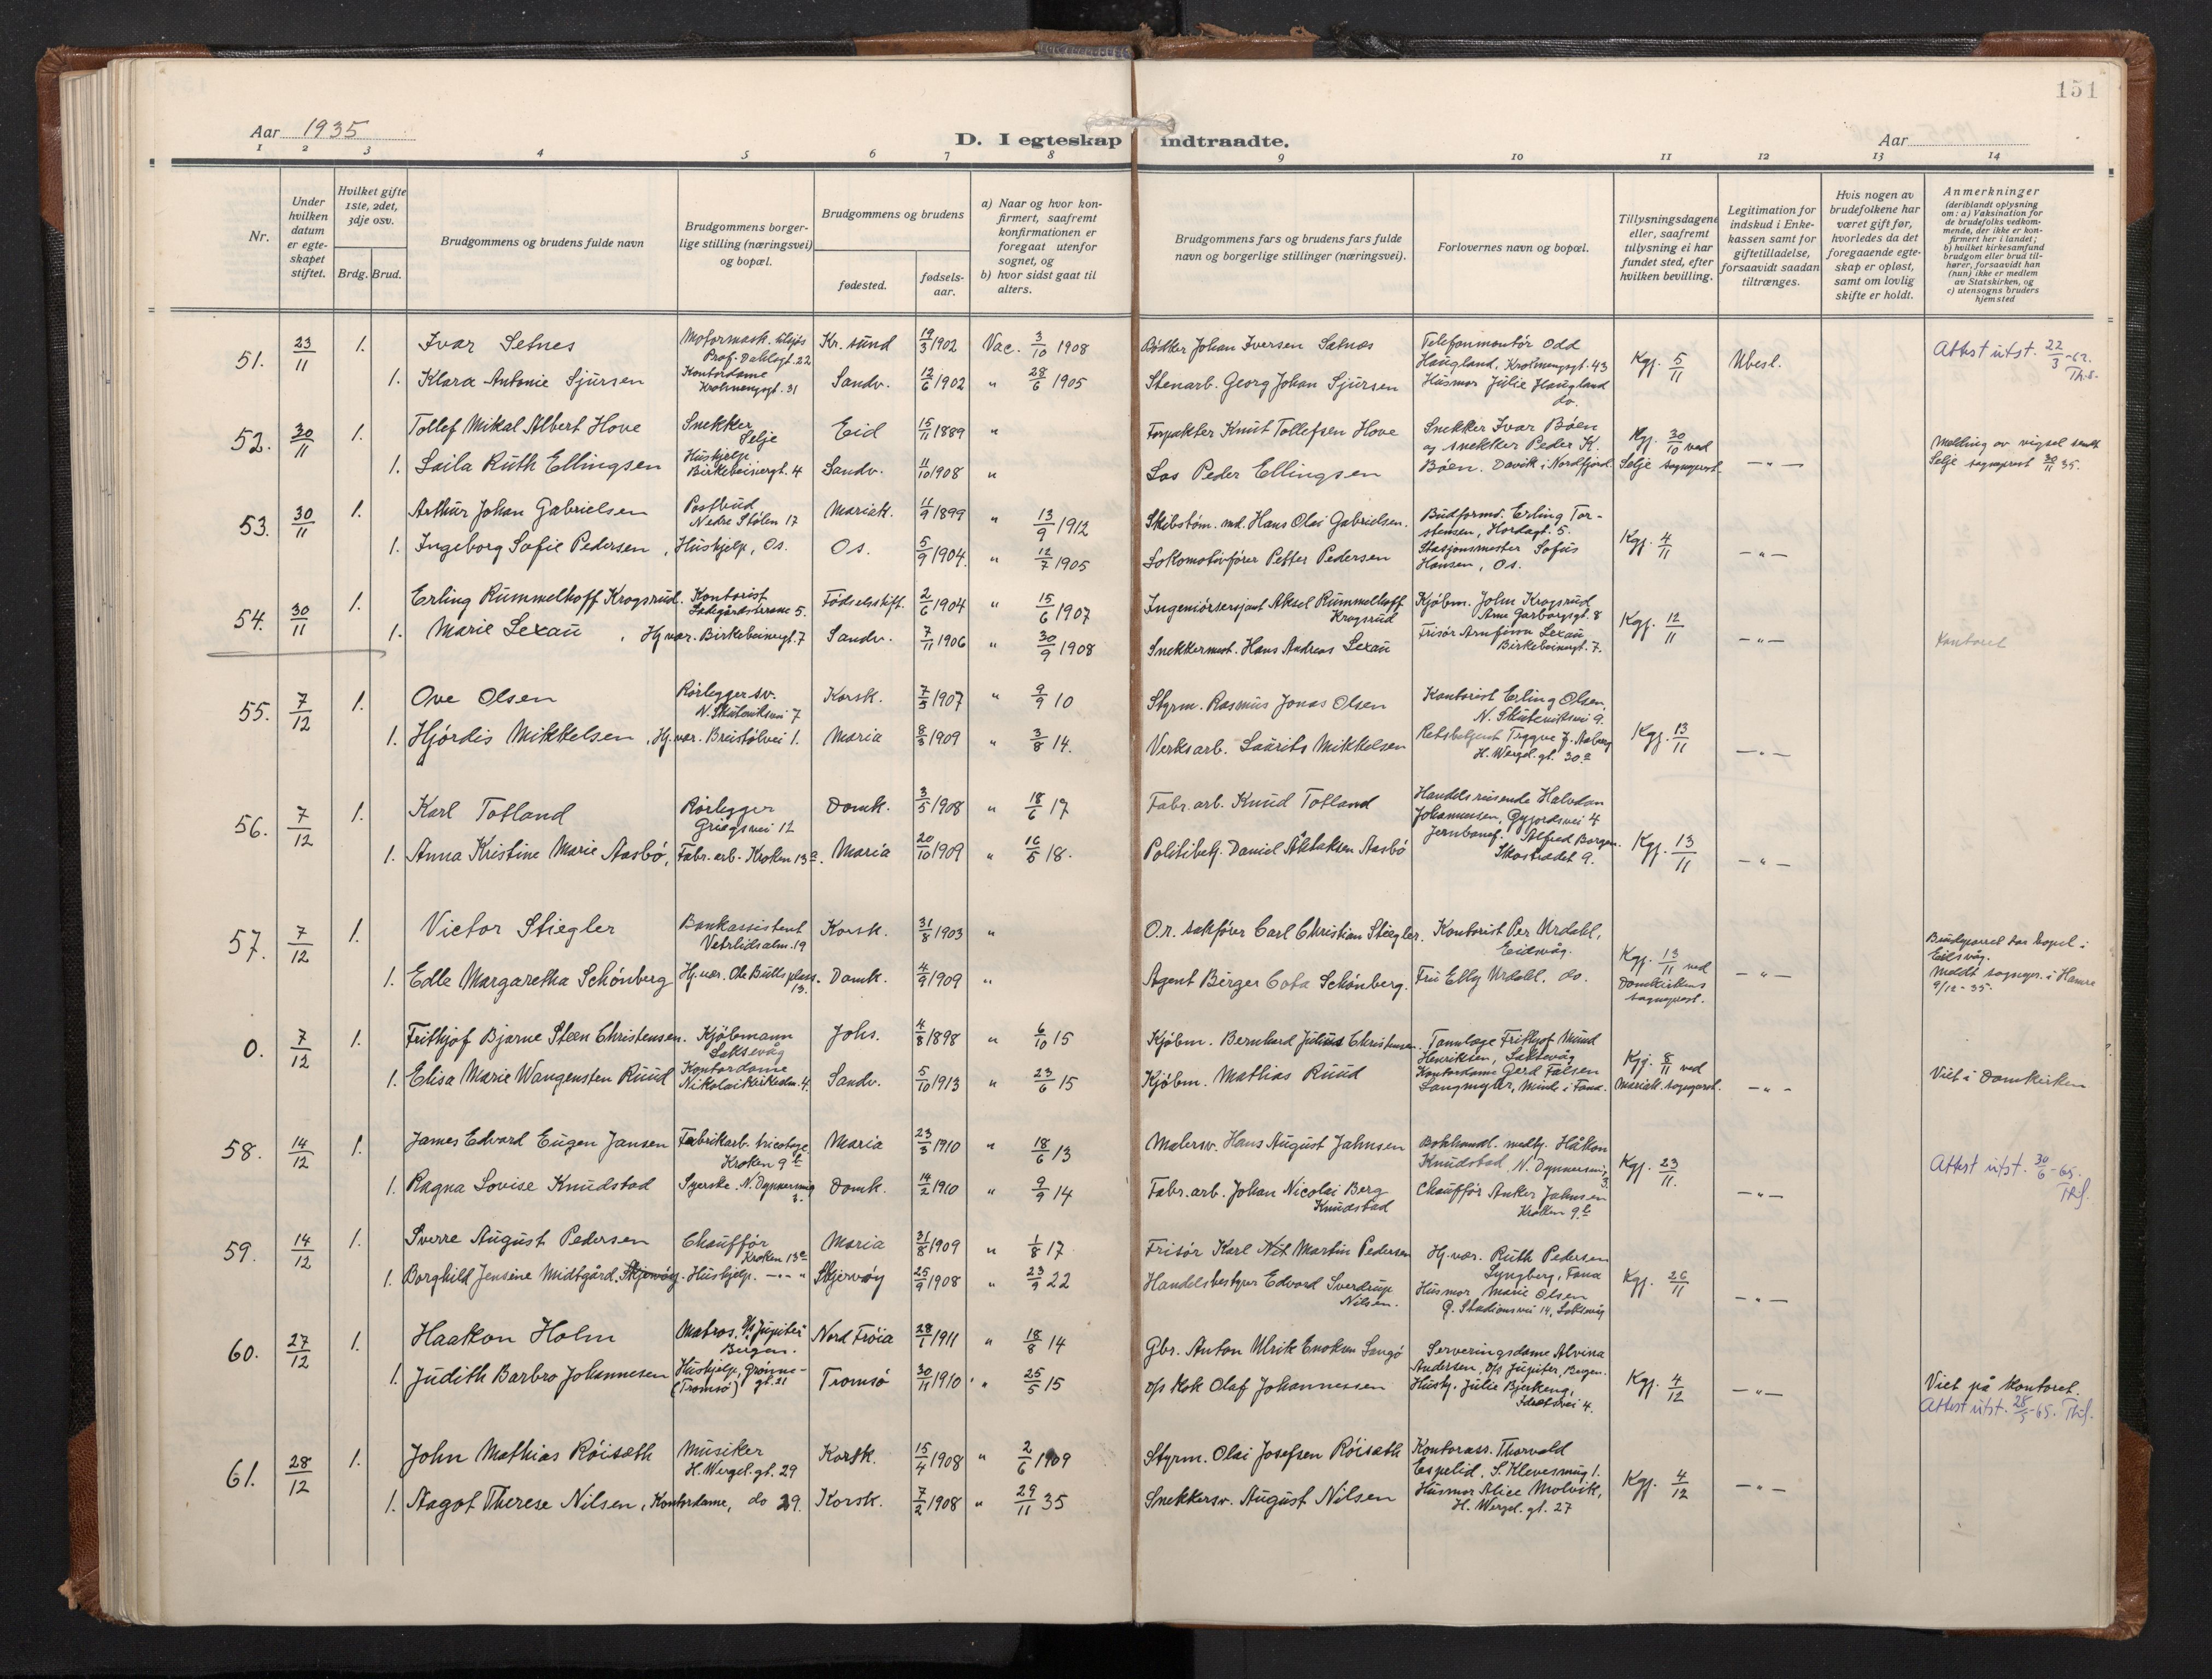 151
Aar 1935
D. I egteskap indtraadte.
Aar
1 2 3 4 5 6 7 8 9 10 11 12 13 14
Nr.
Under hvilken datum er egteskapet stiftet.
Hvilket gifte 1ste, 2det, 3dje osv.
Brdg. Brud.
Brudgommens og brudens fulde navn
Brudgommens borgerlige stilling (næringsvei) og bopæl.
Brudgommens og brudens
fødested.
fødselsaar.
a) Naar og hvor konfirmert, saafremt konfirmationen er foregaat utenfor sognet, og
b) hvor sidst gaat til alters.
Brudgommens fars og brudens fars fulde navn og borgerlige stillinger (næringsvei).
Forlovernes navn og bopæl.
Tillysningsdagene eller, saafremt tillysning ei har fundet sted, efter hvilken bevilling.
Legitimation for indskud i Enkekassen samt for giftetilladelse, forsaavidt saadan tiltrænges.
Hvis nogen av brudefolkene har været gift før, hvorledes da det foregaaende egteskap er opløst, samt om lovlig skifte er holdt.
Anmerkninger
(deriblandt oplysning om: a) Vaksination for de brudefolks vedkommende, der ikke er konfirmert her i landet; b) hvilket kirkesamfund brudgom eller brud tilhører, forsaavidt han (hun) ikke er medlem av Statskirken, og c) utensogns bruders hjemsted
51. 23/11 1. Ivar Setnes Motormask. Prof. Dahlsgt. 22 Kr. sund 19/3 1902 Vac. 3/10 1908 Bødker Johan Iversen Sætnes Telefonmontør Odd Haugland, Krohnengsgt. 43 Kgj. 5/11 Ubesl. Attest utst. 22/3-62. Th.S.
1. Klara Antonie Sjursen Kontordame Krohnengsgt. 31 Sandv. 12/6 1902 " 28/6 1905 Stenarb. Georg Johan Sjursen Husmor Julie Haugland do.
52. 30/11 1. Tollef Mikal Albert Hove Snekker Selje Eid 15/11 1889 " Forpakter Knut Tollefsen Hove Snekker Ivar Bøen og snekker Peder K. Bøen. Davik i Nordfjord. Kgj. 30/10 ved Selje sogneprest. - " - Melding av vigsel sendt Selje sogneprest 30/11 35.
1. Laila Ruth Ellingsen Hushjelp Birkebeinergt. 4 Sandv. 11/10 1908 " Los Peder Ellingsen
53. 30/11 1. Arthur Johan Gabrielsen Postbud Nedre Stølen 17 Mariak. 11/9 1899 " 13/9 1912 Skibstøm. md. Hans Olai Gabrielsen. Budform. Erling Torstensen, Hordagt. 5. Kgj. 4/11 - " -
1. Ingeborg Sofie Pedersen, Hushjelp, Os. Os. 5/9 1904. " 12/7 1905 Lokomotivfører Petter Pedersen Stasjonsmester Sofus Hansen, Os.
54. 30/11 1. Erling Rummelhoff Krogsrud. Kontorist Ladegårdsterrasse 5. Fødselsstift. 2/6 1904 " 15/6 1907 Ingeniørsersjant Aksel Rummelhoff Krogsrud Kjøbm. John Krogsrud Arne Garborgsgt. 8 Kgj. 12/11 - " - Kontoret
1. Marie Lexau, Hj.vær. Birkebeinergt. 7 Sandv. 7/11 1906 " 30/9 1908 Snekkermest. Hans Andreas Lexau Frisør Arnfinn Lexau, Birkebeinergt. 7.
55. 7/12 1. Ove Olsen Rørlegger sv. N. Skuteviksvei 7 Korsk. 7/5 1907 " 9/9 10 Styrm. Rasmus Jonas Olsen Kontorist Erling Olsen, N. Skuteviksvei 9. Kgj. 13/11 - " -
1. Hjørdis Mikkelsen, Hj.vær. Breistølvei 1. Maria 8/3 1909 " 3/8 14. Verksarb. Laurits Mikkelsen Trygve J. Aaberg H. Wergel. gt. 30a
56. 7/12 1. Karl Totland Rørlegger Griegsvei 12 Domk. 3/5 1908 " 18/6 17 Fabr. arb. Knud Totland Handelsreisende Halvdan Johannessen, Gyfordsvei 4 Kgj. 13/11 - " -
1. Anna Kristine Marie Aasbø, Fabr. arb. Kroken 13a. Maria 20/10 1909 " 16/5 18. Politibetj. Daniel Aasbø Alfred Borgen. Skostredet 9.
57. 7/12 1. Victor Stiegler Bankassistent Vetrlidsalm. 19 Korsk. 31/8 1903 " O.r. sakfører Carl Christian Stiegler. Kontorist Per Urdahl, Eidsvåg. Kgj. 13/11 ved Domkirkens sogneprest. - " - Brudeparret har bopel i Eidsvåg. Meldt sognepr. i Hamre 9/12-35.
1. Edle Margaretha Schønberg Hj.vær. Ole Bulls plass 13. Domk. 4/9 1909 " Agent Birger Cota Schønberg. Fru Elly Urdahl. do.
0. 7/12 1. Frithjof Bjarne Steen Christensen. Kjøbmann Laksevåg Johs. 4/8 1898 " 6/10 15 Kjøbm. Bernhard Julius Christensen. Tannlæge Frithjof Mund Henriksen, Laksevåg Kgj. 8/11 ved Mariak. sogneprest. - " - Viet i Domkirken
1. Elisa Marie Wangensten Ruud Kontordame Nikolaikirkealm. 4. Sandv. 5/10 1913 " 23/6 15 Kjøbm. Mathias Ruud Kontordame Gerd Falsen Langmyhr, Minde i Fana.
58. 14/12 1. James Edvard Eugen Jansen Fabrikarb. tricotage Kroken 9b Maria 23/3 1910 " 18/6 13 Malersv. Hans August Jahnsen Bokhandl. medhj. Håkon Knudstad N. Dynnersmug 3. Kgj. 23/11. - " - Attest utst. 30/6-65. Thf.
1. Ragna Lovise Knudstad Syerske. N. Dynnersmug 3. Domk. 14/2 1910 " 9/9 14 Fabr. arb. Johan Nicolai Berg Knudstad Chauffør Anker Jahnsen Kroken 9b
59. 14/12 1. Sverre August Pedersen Chauffør Kroken 13a Maria 31/8 1909 " 1/8 17 Frisør Karl Nit Martin Pedersen Hj.vær. Ruth Pedersen Lyngberg, Fana Kgj. 26/11 - " -
1. Borghild Jensine Midtgård, Skjervøy. Hushjelp. - " - Skjervøy 25/9 1908 " 23/9 22 Handelsbestyrer Edvard Sverdrup Nilsen. Husmor Marie Olsen G. Stadionsvei 14, Laksevåg
60. 27/12 1. Haakon Holm Matros. D/S Jupiter Bergen. Nord Frøia 28/1 1911 " 18/8 14 Gbr. Anton Ulrik Enoksen Serveringsdame Alvina Andersen, D/S Jupiter, Bergen. Kgj. 4/12 - " - Viet på kontoret. Attest utst. 28/5-65. Thf.
1. Judith Barbro Johannesen Hushjelp, Grønnegt. 21 (Tromsø) Tromsø 30/11 1910 " 25/5 15 D/S Kok Olaf Johannessen Hushj. Julie Bjerkeng, Idrettsvei 4.
61. 28/12 1. John Mathias Røisæth Musiker H. Wergel. gt. 29 Korsk. 15/4 1908 " 2/6 1909 Styrm. Olai Josefsen Røisæth Kontorass. Thorvald Espelid, S. Klevesmug 1. Kgj. 4/12 - " -
1. Aagot Therese Nilsen, Kontordame, do 29. Korsk. 7/2 1908 " 29/11 35 Snekkersv. August Nilsen Husmor Alice Molvik, H. Wergel. gt. 27